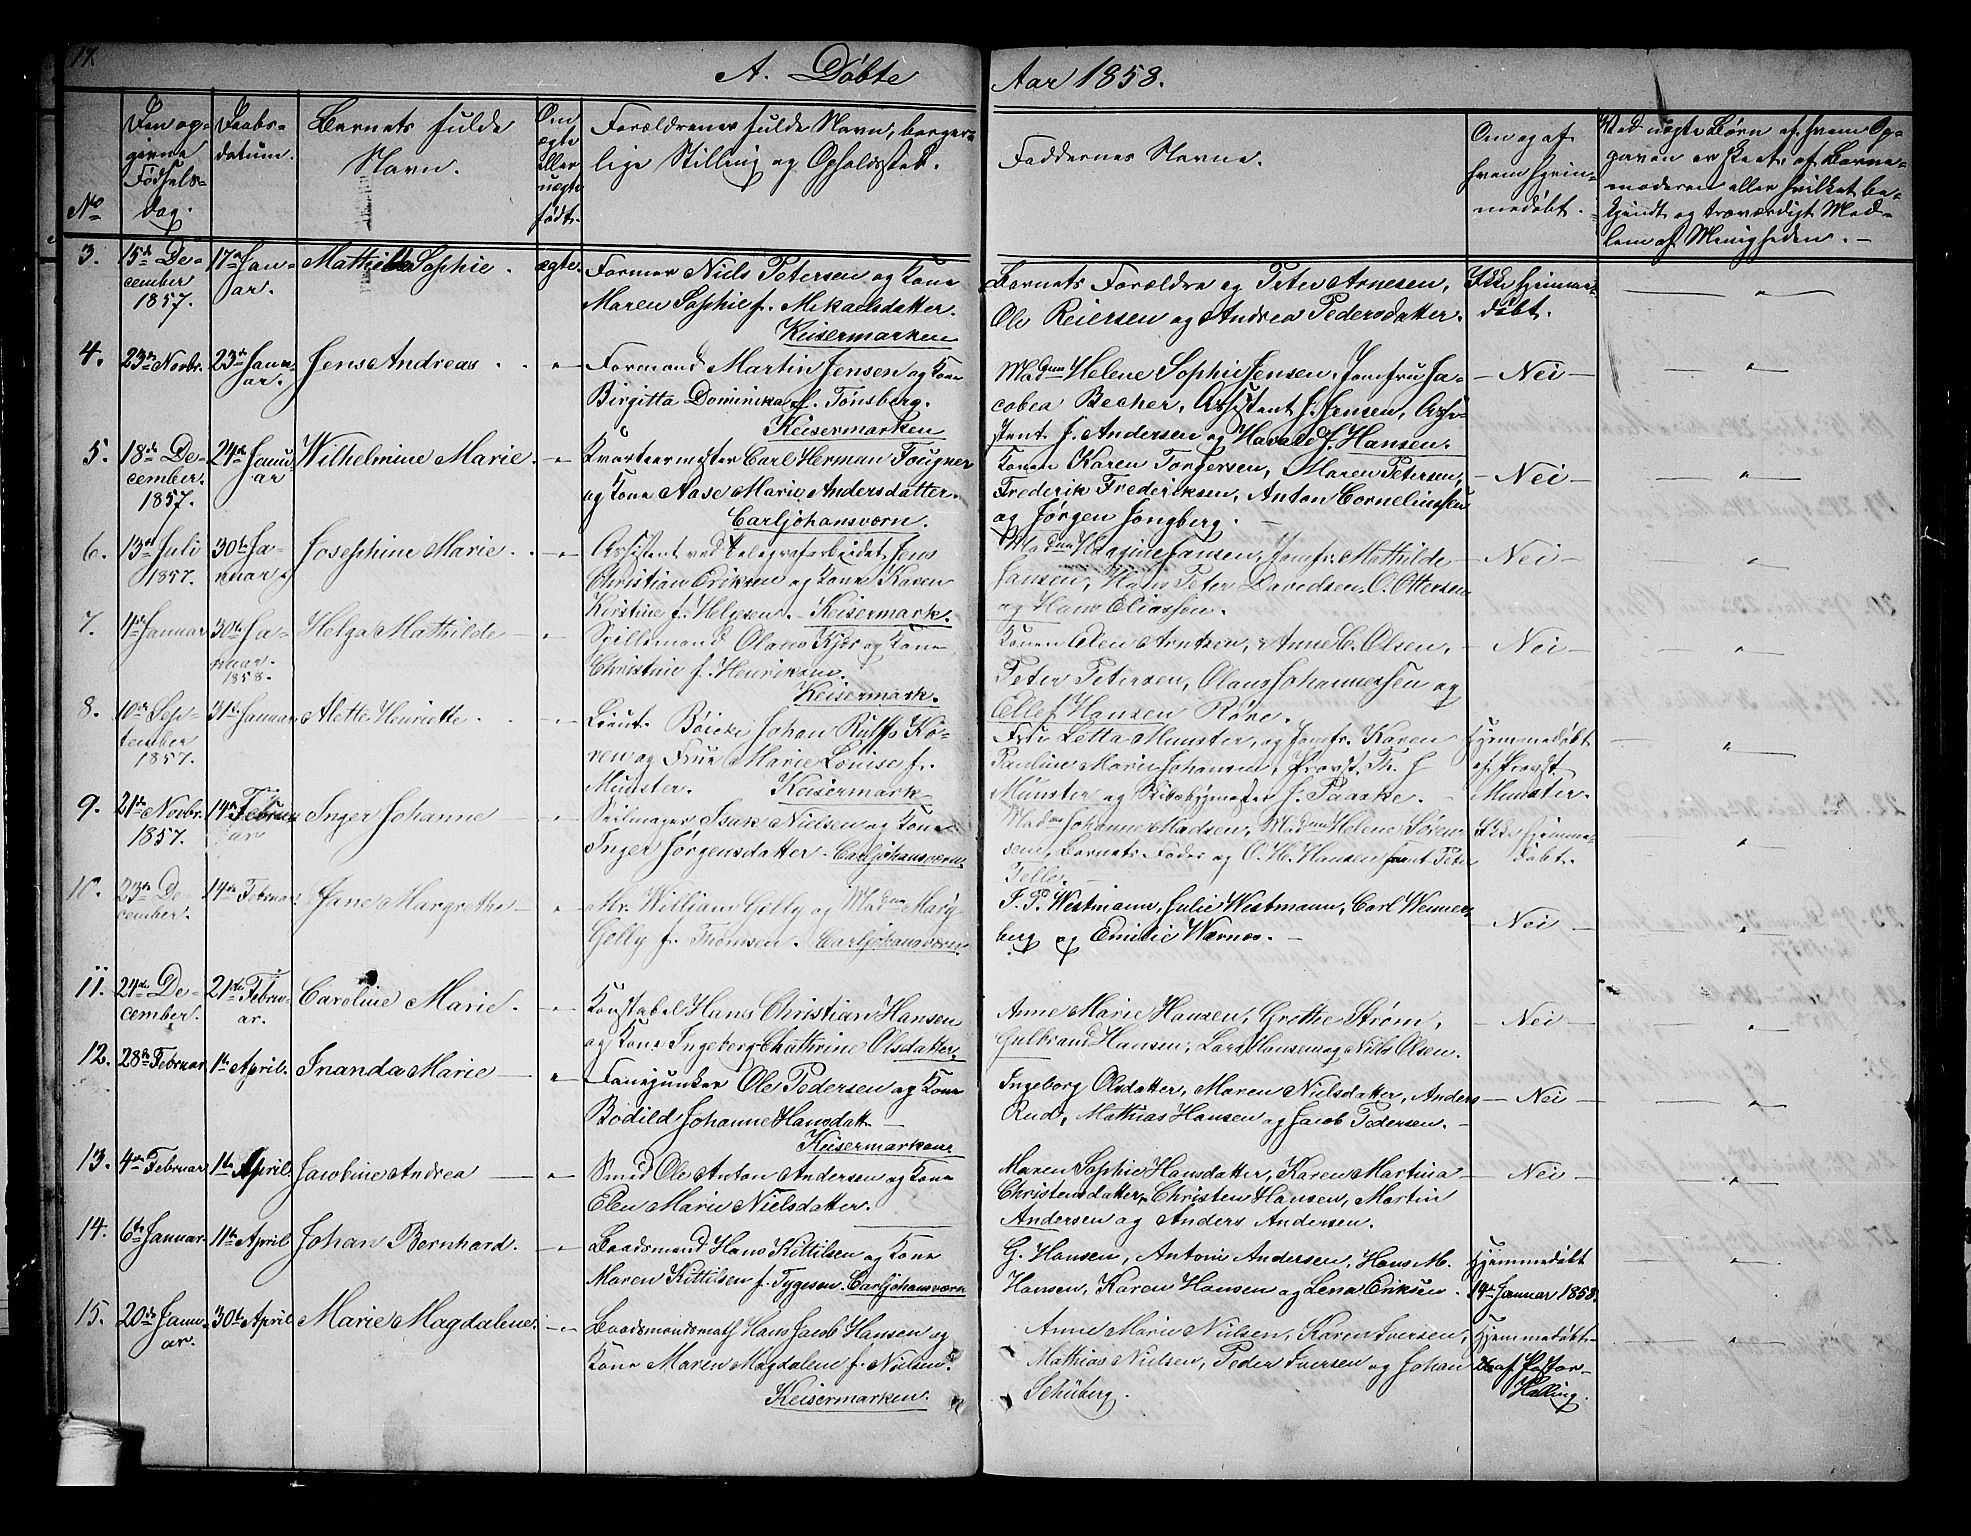 17.
A. Døbte
Aar 1858.
No
Den op-
givne
Fødsels-
dag.
Daabs-
datum.
Barnets fulde
Navn.
Om
ægte
eller
uægte
født.
Forældrenes fulde Navn, borger-
lige Stilling og Opholdssted.
Faddernes Navne.
Om og af
hvem hjem-
medøbt.
Ved uægte Børn af hvem Op-
gaven er skeet, af Barne-
moderen eller hvilket be-
kjendt og troværdigt Med-
lem af Menigheden. —
3. 15de De- 17de Janu- Mathilde Sophie. ægte.
cember ar.
1857.
Niels Petersen og Kone
Maren Sophie f. Mikaelsdatter.
Keisermarken
Barnets Forældre og Peter Arnesen,
Ole Reiersen og Andrea Pedersdatter.
Ikke hjemme-
døbt.
4. 23de Novbr. 23de Janu- Jens Andreas . . "
ar.
Formand Martin Jensen og Kone
Birgitta Dominika f. Tønsberg.
Keisermarken
Madmm Helene Sophie Jensen, Jomfru Ja-
cobea Becher, Assistent J. Jensen, Assi-
stent J. Andersen og Harald J. Hansen.
— Nei —
5. 18de De- 24de Janu- Wilhelmine Marie. "
cember. ar
1857.
Kvarteermester Carl Herman Fougner
og Kone Aase Marie Andersdatter.
Carljohansværn.
Konen Karen Torgersen, Maren Petersen,
Frederik Frederiksen, Anton Corneliussen
og Jørgen Jongberg. —
— Nei —
6. 13de Juli 30te Ja- Josephine Marie . . "
1857. nuar
Assistent ved Telegrafarbeidet Jens
Christian Eriksen og Kone Karen
Kirstine f. Helgesen. Keisermark.
Jansen, Jomfr. Mathilde
Jansen, Hans Peter Davidsen, O. Ottersen
og Hans Eliassen.
— Nei —
7. 4de Januar 30te Ja- Helga Mathilde — "
nuar.
1858.
Spillemand Olaus Kjær og Kone
Christine f. Henriksen.
Keisermark.
Konen Elen Arntzen, Anne C. Olsen,
Peter Petersen, Olaus Johannessen og
Ellef Hansen Røre.
Nei —
8. 10de Sep- 31te Januar Alette Henriette. . "
tember
1857.
Lieut. Johan Rulffs Ko-
ren og Frue Marie Louise f.
Munster. Keisermark
Fru Letta Munster, og Jomfr. Karen
Pauline Marie Johansen, Provst Th. J
Munster og Skibsbygmester J. Paaske. —
Hjemmedøbt
af Provst
Munster.
9. 21de Novbr. 14de Februar Inger Johanne "
1857.
Seilmager Isak Nielsen og Kone
Inger Jørgensdatter. Carljohansværn.
Johanne Madsen, Helene Søren-
Barnets Fader og O. H. Hansen samt Peter
Telle. —
Ikke hjemme-
døbt.
10. 23de De- 14de Februar Jane Margrethe — "
cember.
Mr. William Gelly og Madmm Mary
Gelly f. Thomsen. Carljohansværn.
J. P. Westmann, Julie Westmann, Carl Wenners-
berg og Emilie Wærnes. —
Nei —
11. 24de De- 21de Febru- Caroline Marie. "
cember. ar.
Konstabel Hans Christian Hansen
og Kone Ingeborg Cathrine Olsdatter.
Anne Marie Hansen, Grethe Strøm,
Gulbrand Hansen, Lars Hansen og Niels Olsen.
— Nei —
12. 28de Februar 1te April. Inanda Marie — "
Fanejunker Ole Pedersen og Kone
Bodild Johanne Hansdatt —
Keisermarken.
Ingeborg Olsdatter, Maren Nielsdatter, Anders
Rud, Mathias Hansen og Jacob Pedersen. —
— Nei —
13. 4de Februar 1te April Jacobine Andrea — "
Smed Ole Anton Andersen og Kone
Elen Marie Nielsdatter.
Maren Sophie Hansdatter, Karen Martina
Christensdatter, Christen Hansen, Martin
Andersen og Anders Andersen.
— Nei
14. 6te Januar. 11te April Johan Bernhard. — "
Baadsmand Hans Kittilsen og Kone
Maren Kittilsen f. Tygesen. Carljohansværn
G. Hansen, Antoni Andersen, Hans M.
Hansen, Karen Hansen og Lena Eriksen.
Hjemmedøbt
19de Januar 1858.
15. 20de Janu- 30te April Marie Magdalene. "
ar.
Baadsmandsmath Hans Jacob Hansen og
Kone Maren Magdalene f. Nielsen.
Keisermarken.
Anne Marie Nielsen, Karen Iversen,
Mathias Nielsen, Peder Iversen og Johan
Schüberg.
Hjemmedøbt
af Pastor
Halling.